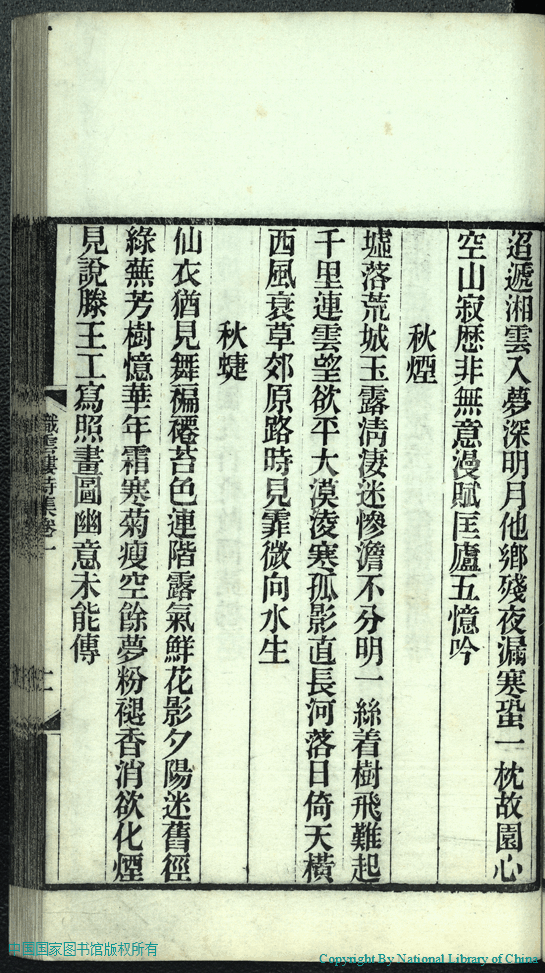 迢遞湘雲入夢深明月他鄉殘夜漏寒蛩一枕故園心
空山寂歷非無意漫賦匡廬五憶吟
秋煙
墟落荒城玉露淸淒迷慘澹不分明一絲着樹飛難起
千里連雲望欲平大漠淩寒孤影直長河落日倚天橫
西風衰草郊原路時見霏微向水生
秋蜨
仙衣猶見舞褊褼苔色連階露氣鮮花影夕陽迷舊徑
綠蕪芳樹憶華年霜寒菊瘦空餘夢粉褪香消欲化煙
見說滕王工寫照畫圖幽意未能傳
織雲樓詩集卷一
二
中国国家图书馆版权所有
Copyright By National Library of China